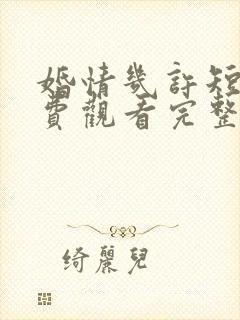 婚情幾許短
費觀看完整
綺麗兒